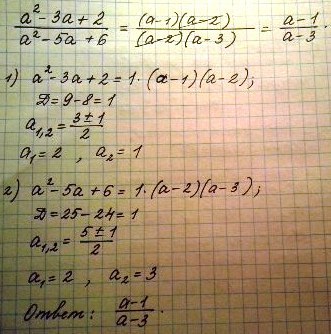 (a² - 3a + 2)/(a² - 5a + 6) = ((a-1)(a-2))/((a-2)(a-3)) = (a-1)/(a-3).
1) a² - 3a + 2 = 1·(a-1)(a-2);
D = 9 - 8 = 1
a₁,₂ = (3 ± 1)/2
a₁ = 2 , a₂ = 1
2) a² - 5a + 6 = 1·(a-2)(a-3);
D = 25 - 24 = 1
a₁,₂ = (5 ± 1)/2
a₁ = 2 , a₂ = 3
Ответ: (a-1)/(a-3).